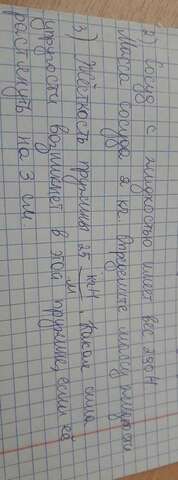 2) Сосуд с жидкостью имеет вес 250 Н
Масса сосуда 2 кг. Определите массу жидкости
3) Жёсткость пружины 25 кН/м. Какая сила
упругости возникнет в этой пружине, если её
растянуть на 3 см.